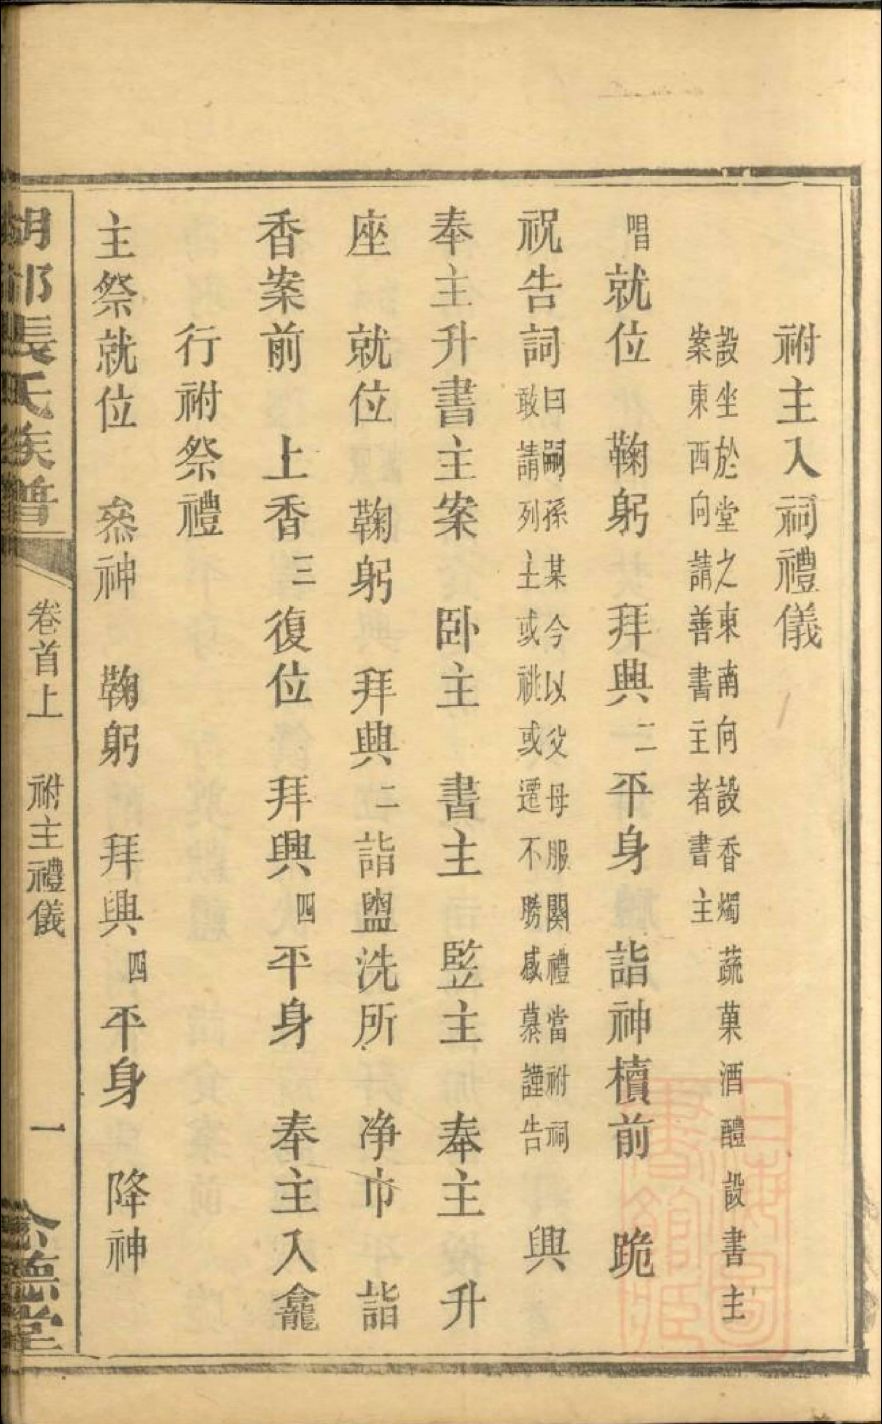 祔主入祠禮儀
設坐於堂之東南向設香燭蔬菓酒醴設書主
案東西向請善書主者書主
唱就位 鞠躬 拜興二平身 詣神櫝前 跪
祝告詞曰嗣孫某今以父母服闋禮當祔祠
敢請列主或祧或遷不勝感慕謹告 興
奉主升書主案 卧主 書主 監主 奉主升
座 就位 鞠躬 拜興二詣盥洗所 净巾 詣
香案前 上香三復位 拜興四平身 奉主入龕
行祔祭禮
主祭就位 叅神 鞠躬 拜興四平身 降神
張氏族譜 卷首上 祔主禮儀 一 德堂